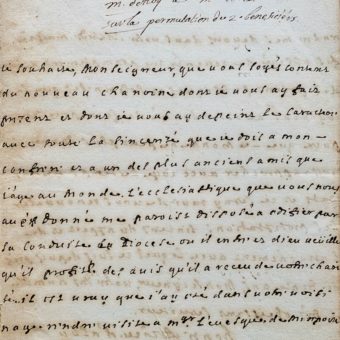 sur la permutation du 2 benefices
ie souhaite, Monseigneur, que vous soyés content
du nouveau chanoine dont ie vous ay fait
present et dont ie vous ay depeint le caractere
avec toute la sincerité que ie dois a mon
confrere et a un des plus anciens amis que
i'aye au Monde. L'ecclesiastique que vous nous
avés donné me paroist disposé a edifier par
sa conduite le Diocese ou il entre, dieu veuille
qu'il profite des avis qu'il a receu de votre
il est vray que i'ay eté dans votre voisi
nage rendre visite a Mgr L'evesque de Mirepoix